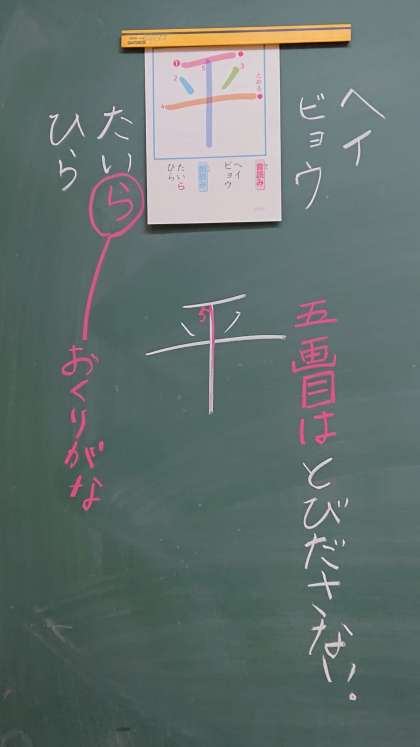 平
1
2
3
4
5
とめる
音読み
ヘイ
ビョウ
訓読み
たいら
ひら
ヘイ
ビョウ
たいら
ひら
おくりがな
平
5
五画目は
とびださない。